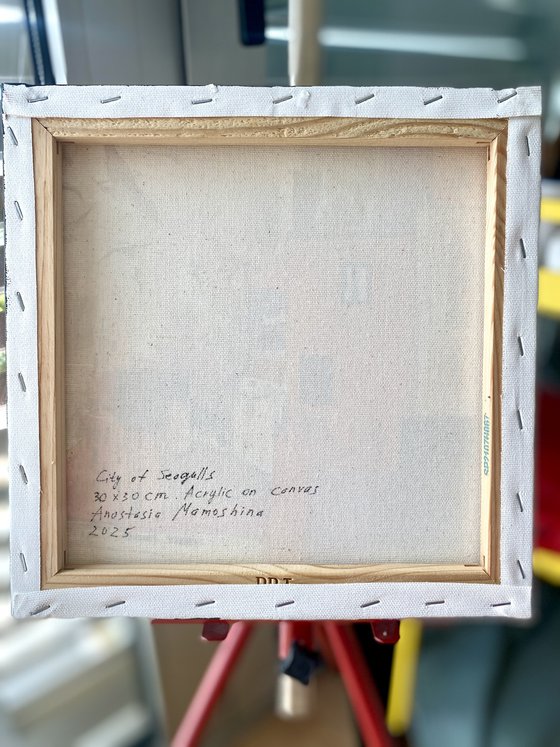 City of Seagulls
30 x 30 cm. Acrylic on canvas
Anastasia Mamoshina
2025